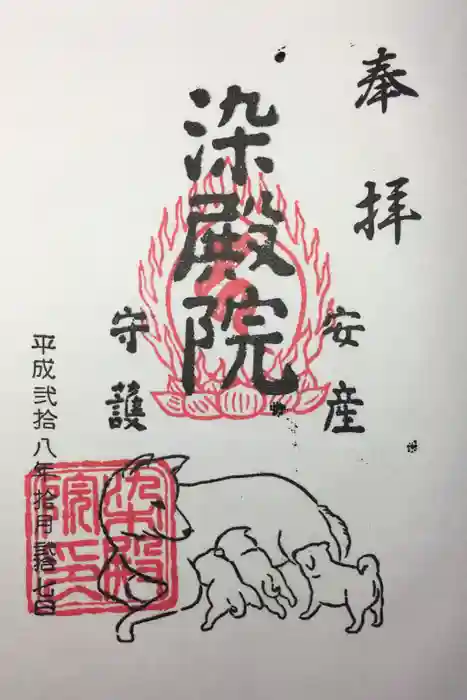 奉拝
染殿院
安産
守護
平成弐拾八年拾月弐拾七日
染殿院印